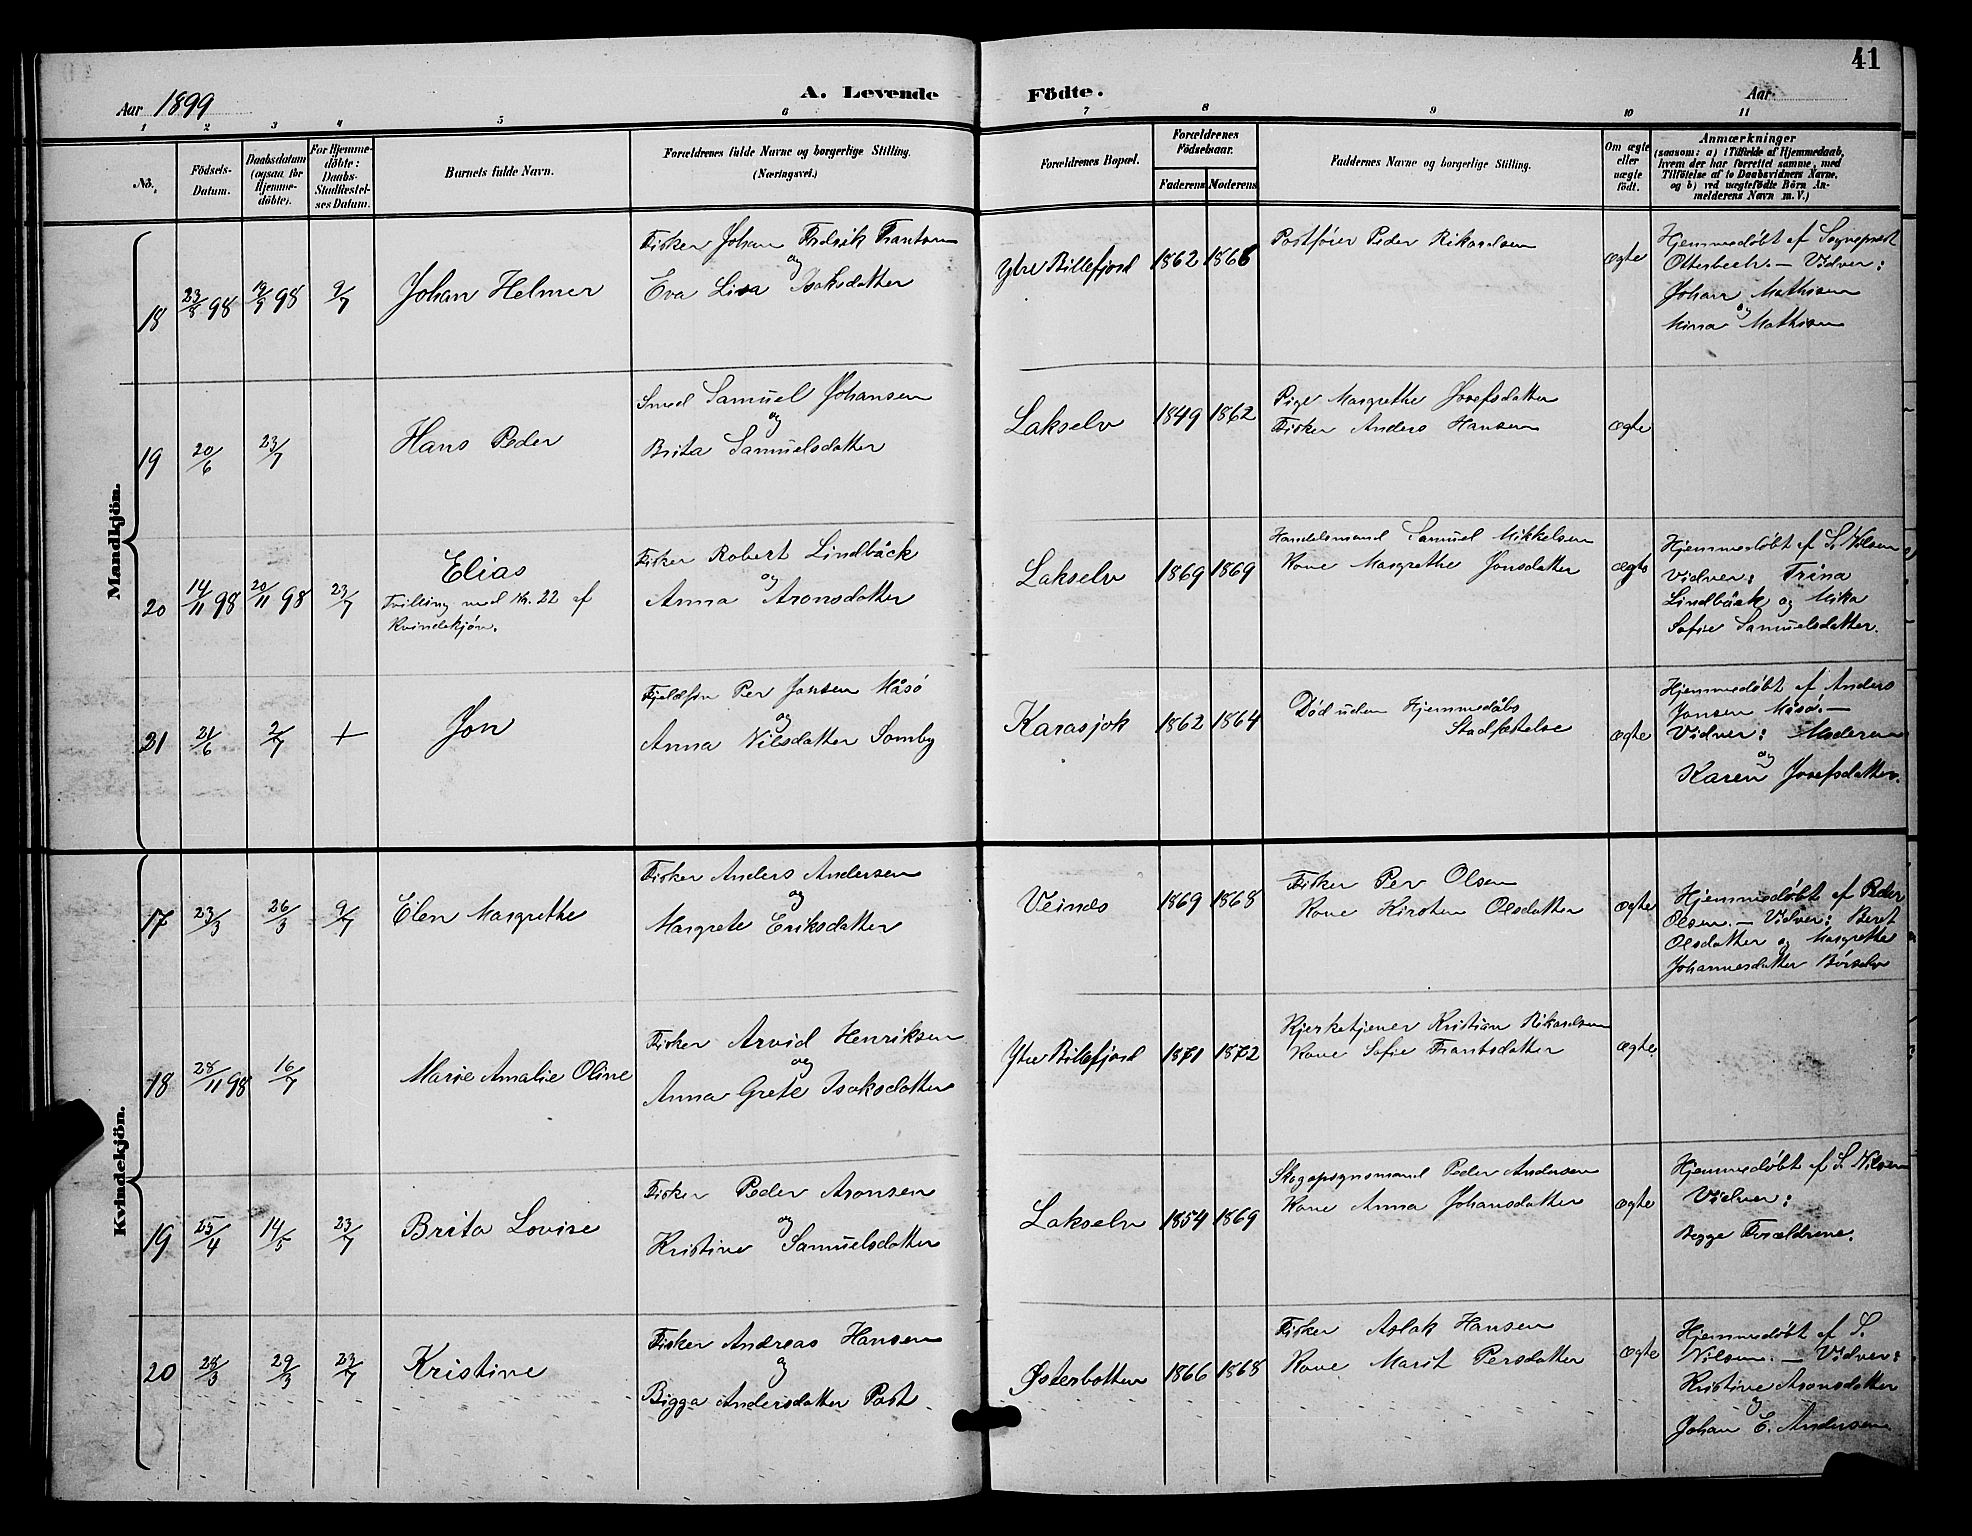 41
Aar 1899
A. Levende Födte.
Aar
1 2 3 4 5 6 7 8 9 10 11
No.
Födsels-Datum.
Daabsdatum (ogsaa for Hjemme-döbte).
For Hjemme-döbte: Daabs-Stadfæstel-ses Datum.
Barnets fulde Navn.
Forældrenes fulde Navne og borgerlige Stilling. (Næringsvei.)
Forældrenes Bopæl.
Forældrenes Födselsaar.
Faderens Moderens
Faddernes Navne og borgerlige Stilling.
Om ægte eller uægte födt.
Anmærkninger
(saasom: a) i Tilfælde af Hjemmedaab, hvem der har forrettet samme, med Tilföielse af to Daabsvidners Navne, og b) ved uægtefödte Börn An-melderens Navn m. V.)
Mandkjön.
18 23/8 98 98 9/7 Johan Helmer
Fisker Johan Fredrik Frantsen
og
Eva Lisa Isaksdatter
Ytre Billefjord 1862 1866
Postfører Peder Rikardsen
ægte
Hjemmedøbt af Sogneprest
Otterbech. — Vidner:
Johan Mathisen
og
Mina Mathisen
19 20/6 23/7 Hans Peder
Smed Samuel Johansen
og
Brita Samuelsdatter
Lakselv 1849 1862
Pige Margrethe Josefsdatter
Fisker Anders Hansen
ægte
20 14/11 98 20/11 98 23/7 Elias
Tvilling med Nr. 22 af
Kvindekjøn.
Fisker Robert Lindbäck
og
Anna Aronsdatter
Lakselv 1869 1869
Handelsmand Samuel Mikkelsen
Kone Margrethe Jonsdatter
ægte
Hjemmedøbt af S. Nilsen
Vidner: Trina
Lindbäck og Mika
Sofie Samuelsdatter.
21 21/6 2/7 + Jon
Fjeldfin Per Jonsen Måsø
og
Anna Nilsdatter Somby
Karasjok 1862 1864
Død uden Hjemmedåbs
Stadfæstelse
ægte
Hjemmedøbt af Anders
Jonsen Måsø. —
Vidner: Moderen
og
Karen Josefsdatter.
Kvindekjön.
17 23/3 26/3 9/7 Elen Margrethe
Fisker Anders Andersen
og
Margrete Eriksdatter
Veines 1869 1868
Fisker Per Olsen
Kone Kirsten Olsdatter
ægte
Hjemmedøbt af Peder
Olsen. — Vidner: Beret
Olsdatter og Margrethe
Johannesdatter Børselv
18 28/11 98 16/7 Marie Amalie Oline
Fisker Arvid Henriksen
og
Anna Grete Isaksdatter
Ytre Billefjord 1871 1872
Kjerketjener Kristian Rikardsen
Kone Sofie Frantsdatter
ægte
19 25/4 14/5 23/7 Brita Lovise
Fisker Peder Aronsen
og
Kristine Samuelsdatter
Lakselv 1854 1869
Skogopsynsmand Peder Andersen
Kone Anna Johansdatter
ægte
Hjemmedøbt af S. Nilsen
Vidner:
Begge Forældrene.
20 28/3 29/3 23/7 Kristine
Fisker Andreas Hansen
og
Bigga Andersdatter Post
Østerbotten 1866 1868
Fisker Aslak Hansen
Kone Marit Persdatter
ægte
Hjemmedøbt af S.
Nilsen. — Vidner:
Kristine Aronsdatter
og
Johan E. Andersen